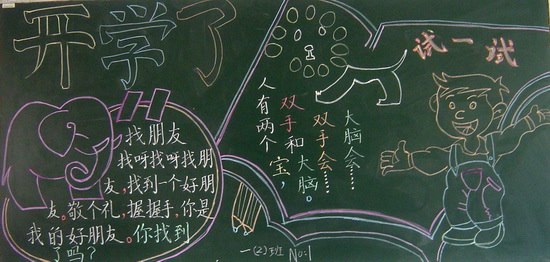 开学了
试一试
找朋友
找呀找呀找朋
友,找到一个好朋
友。敬个礼,握握手,你是
我的好朋友。你找到
了吗?
人有两个宝,
双手和大脑。
双手会……
大脑会……
一(2)班 No:1